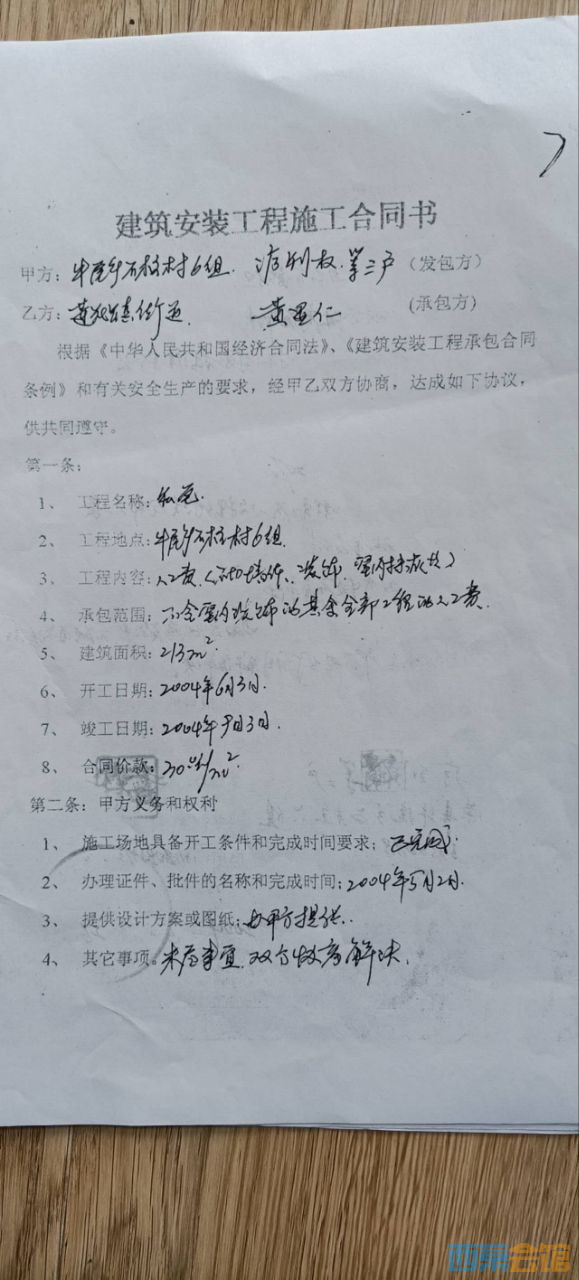 建筑安装工程施工合同书
甲方：牛尾乡石柱村6组 第三户（发包方）
乙方： 黄显仁 (承包方)
根据《中华人民共和国经济合同法》、《建筑安装工程承包合同
条例》和有关安全生产的要求，经甲乙双方协商，达成如下协议，
供共同遵守。
第一条：
1、 工程名称：
2、 工程地点：牛尾乡石柱村6组
3、 工程内容：人工费
4、 承包范围：不含室内装饰的其余全部工程的人工费.
5、 建筑面积：213m²
6、 开工日期：2004年6月3日.
7、 竣工日期：2004年9月3日.
8、 合同价款：/m²
第二条：甲方义务和权利
1、 施工场地具备开工条件和完成时间要求；已完成
2、 办理证件、批件的名称和完成时间：2004年5月2日.
3、 提供设计方案或图纸：由甲方提供.
4、 其它事项。未尽事宜.双方协商解决.
西祠会馆